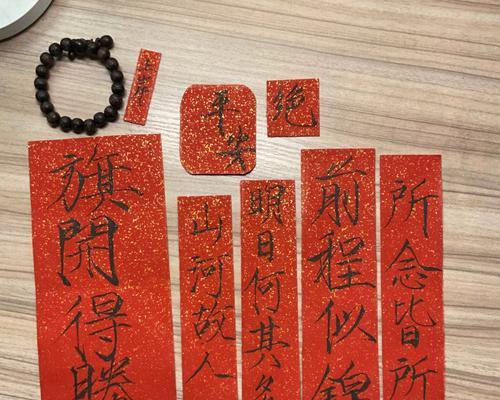 上岸
平安
绝
旗開得勝
山河故人
明日何其多
前程似錦
所念皆所